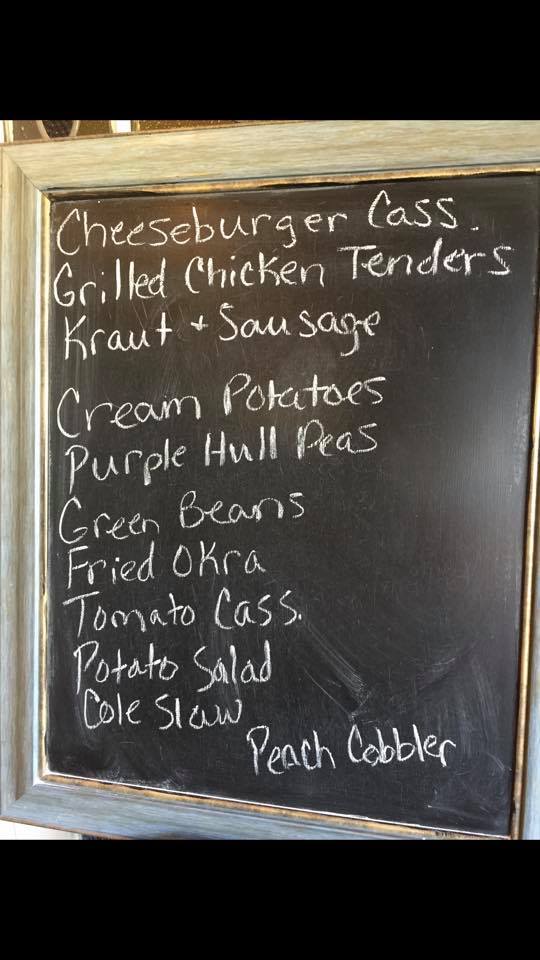 Cheeseburger Cass.
Grilled Chicken Tenders
Kraut + Sausage
Cream Potatoes
Purple Hull Peas
Green Beans
Fried Okra
Tomato Cass.
Potato Salad
Cole Slaw
Peach Cobbler